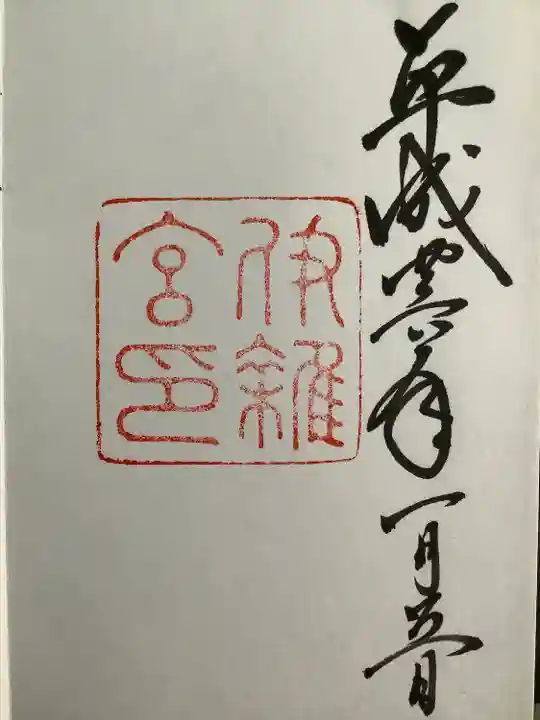 平成
年一月五日
伊雜
宮印